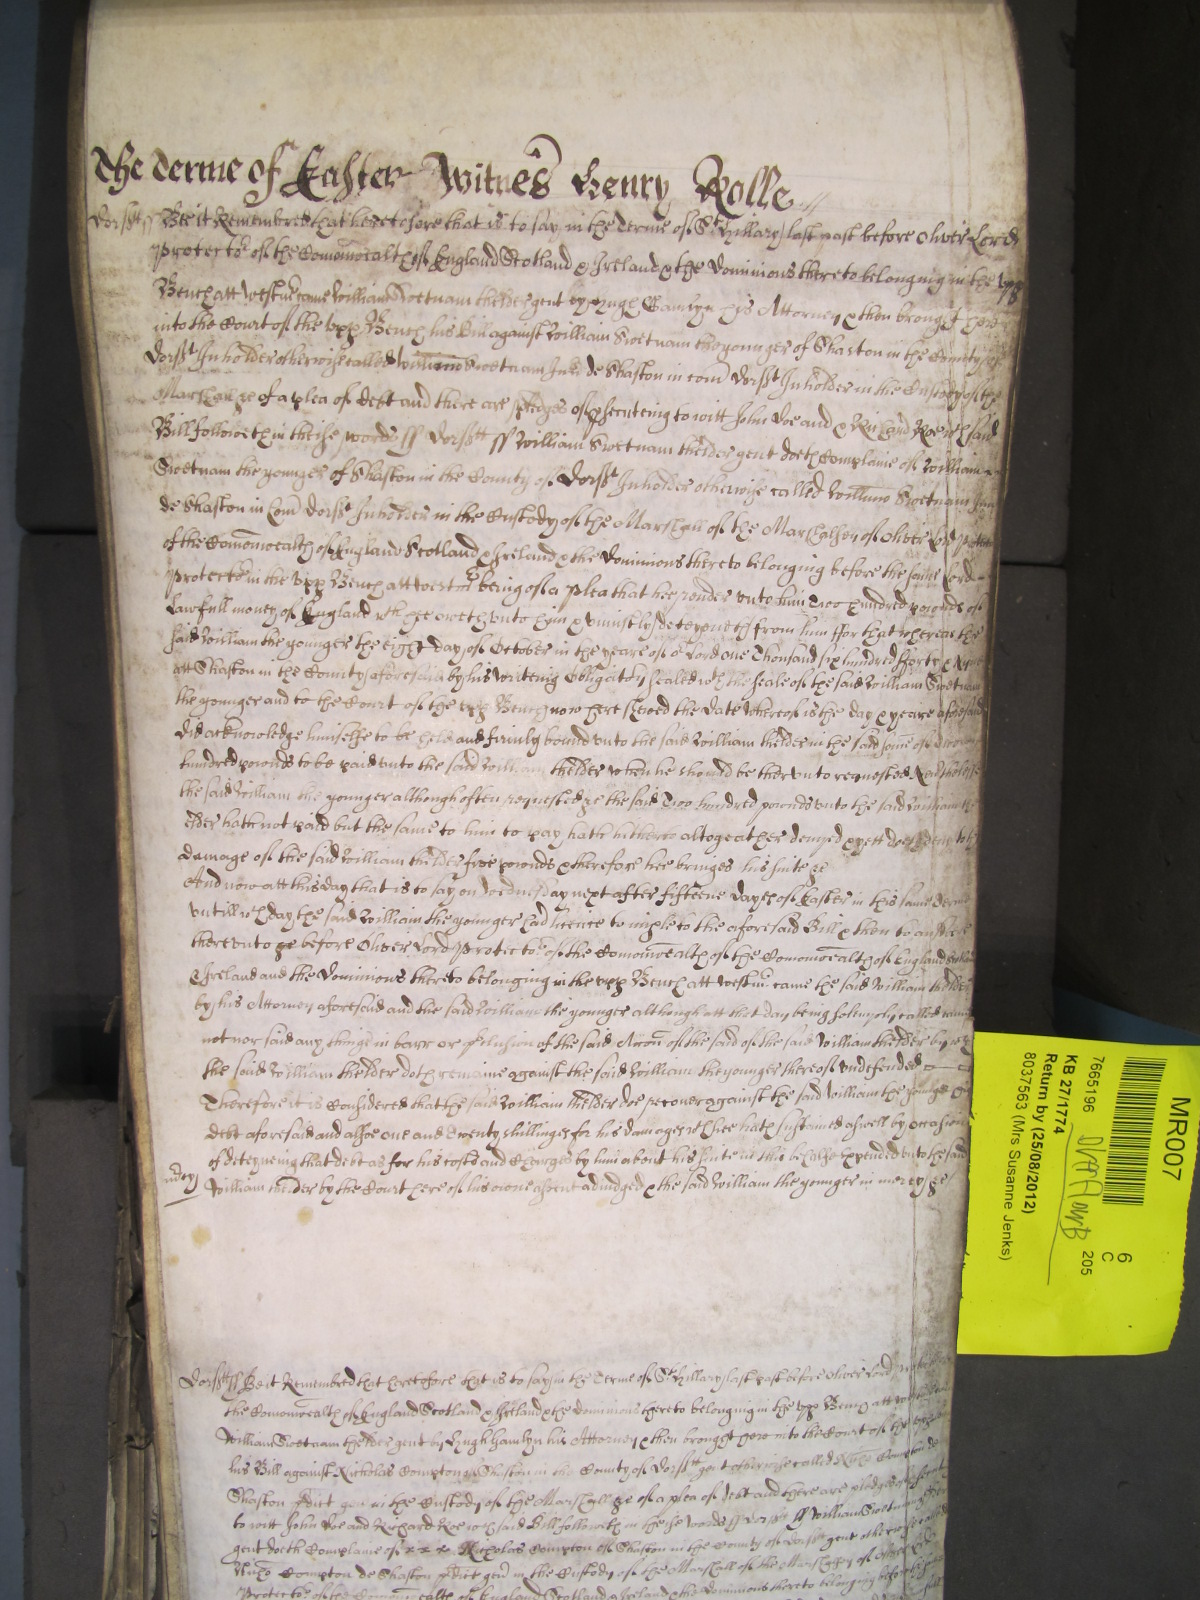 The Terme of Easter Witnes Henry Rolle
Dorsst ss Bee it Remembred that heretofore that is to say in the Terme of St Hillary last past before Oliver Lord
Protector of the Comonwealth of England Scotland & Ireland & the Dominions thereto belonging in the upp
Bench att Westmr came William Swetnam thelder gent by Hugh Hamlyn his Attorney & then brought here
into the Court of the upp Bench his Bill against William Swetnam the younger of Shaston in the County of
Dorsst Inholder otherwise called Willimo Swetnam Jun de Shaston in com Dorsst Inholder in the Custody of the
Marshall ze of a plea of Debt and there are pledges of psecuteing to witt John Doe and Richard Roe wch said
Bill followeth in theise words ss Dorsstt ss William Swetnam thelder gent doeth Complaine of William
Swetnam the younger of Shaston in the County of Dorsst Inholder otherwise called Willimo Swetnam Jun
de Shaston in Com Dorsst Inholder in the Custody of the Marshall of the Marshalsey of Oliver Lord Protector
of the Comonwealth of England Scotland & Ireland & the Dominions thereto belonging before the same Lord
Protector in the upp Bench att Westmr being of a plea that hee render unto him Two hundred pounds of
Lawfull money of England wch hee oweth unto him & uniustly deteyneth from him ffor that whereas the
said William the younger the eight day of October in the yeare of or Lord one Thousand six hundred fforty & Nyne
att Shaston in the County aforesaid by his writeing Obligatory sealed wth the seale of the said William Swetnam
the younger and to the Court of the upp Bench now here shewed the Date whereof is the day & yeare aforesaid
did acknowledge himselfe to be held and firmly bound unto the said William thelder in the said some of Two
hundred pounds to be paid unto the said William thelder when he should be thereunto requested Neverthelesse
the said William the younger although often requested ze the said Two hundred pounds unto the said William the
elder hath not paid but the same to him to pay hath hitherto altogeather denyed & yett doeth deny to the
damage of the said William thelder five pounds & therefore hee bringes his suite ze
And now att this day that is to say on Wednesday next after fifteene dayes of Easter in this same Terme
untill wch day the said William the younger had licence to imple to the aforesaid Bill & then to answere
thereunto ze before Oliver Lord Protector of the Comonwealth of the Comonwealth of England Scotland
& Ireland and the Dominions thereto belonging in the upp Bench att Westmr came the said William thelder
by his Attorney aforesaid and the said William the younger although att that day being solemply called came
not nor said any thinge in barr or pclusion of the said Accon of the said of the said William thelder
the said William thelder doth remaine against the said William the younger thereof undefended
Therefore it is Considered that the said William thelder doe recover against the said William the younger his
debt aforesaid and alsoe one and Twenty shillinges for his damages wch hee hath susteined aswell by occasion
of deteyneing that debt as for his costs and Charges by him about his suite in this behalfe expended unto the said
William thelder by the Court here of his owne assent adiudged & the said William the younger in mercy ze
mercy
Dorsstt ss Bee it Remembred that heretofore that is to say in the Terme of St Hillary last past before Oliver Lord Protector
the Comonwealth of England Scotland & Ireland & the Dominions thereto belonging in the upp Bench att
William Swetnam thelder gent by Hugh Hamlyn his Attorney & then brought here into the Court of the upp
his Bill against Nicholas Compton of Shaston in the County of Dorsstt gent otherwise called Nicho Compton de
Shaston pdict gen in the Custody of the Marshall ze of a plea of debt and there are pledges
to witt John Doe and Richard Roe wch said Bill followeth in these words ss Dorsstt ss William Swetnam
gent doeth Complaine of Nicholas Compton of Shaston in the County of Dorsstt gent otherwise
Nicho Compton de Shaston pdict gen in the Custody of the Marshall of the Marshalsey of Oliver
Protector of the Comonwealth of England Scotland & Ireland & the Dominions thereto belonging before
MR007
6
C
205
7665196
KB 27/1774
Return by (25/08/2012)
8037563 (Mrs Susanne Jenks)